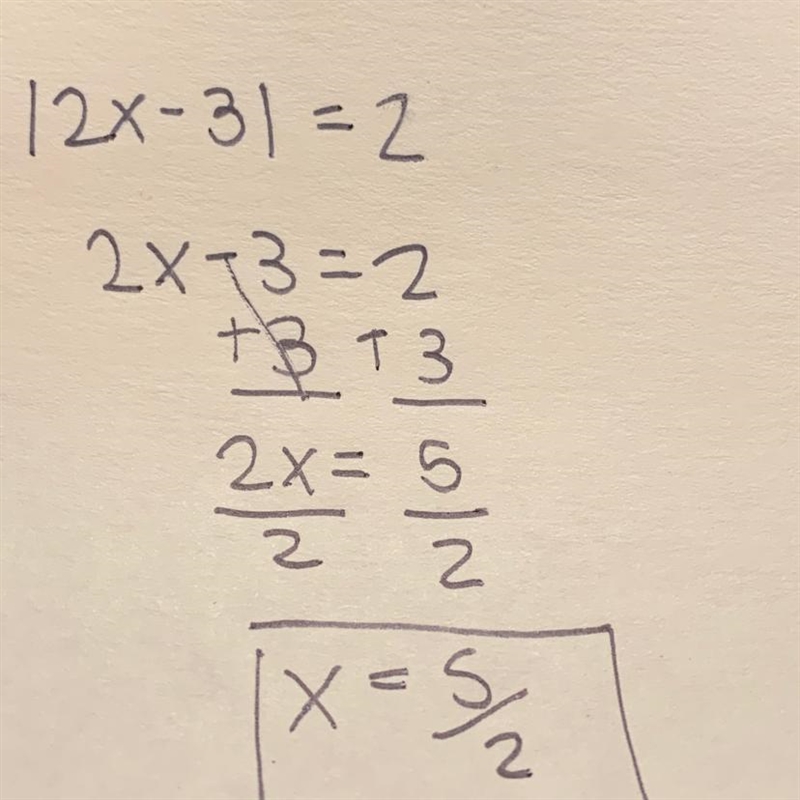 |2x-3| = 2
2x-3=2
+3 +3
2x= 5
2 2
x = 5/2